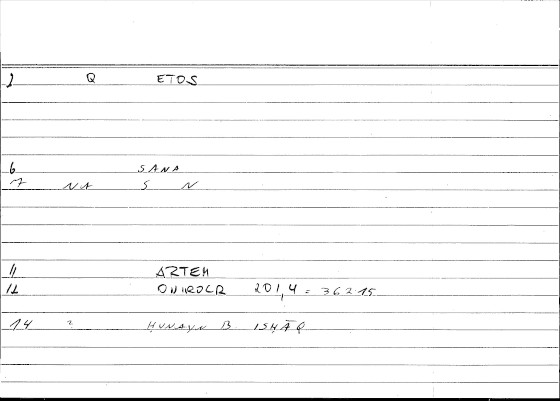 2 Q ETOS
6 SANA
7 NA S N
11 ARTEM
12 ONIROCR 201,4 = 362.15
14 ? HUNAYN B. ISḤĀQ